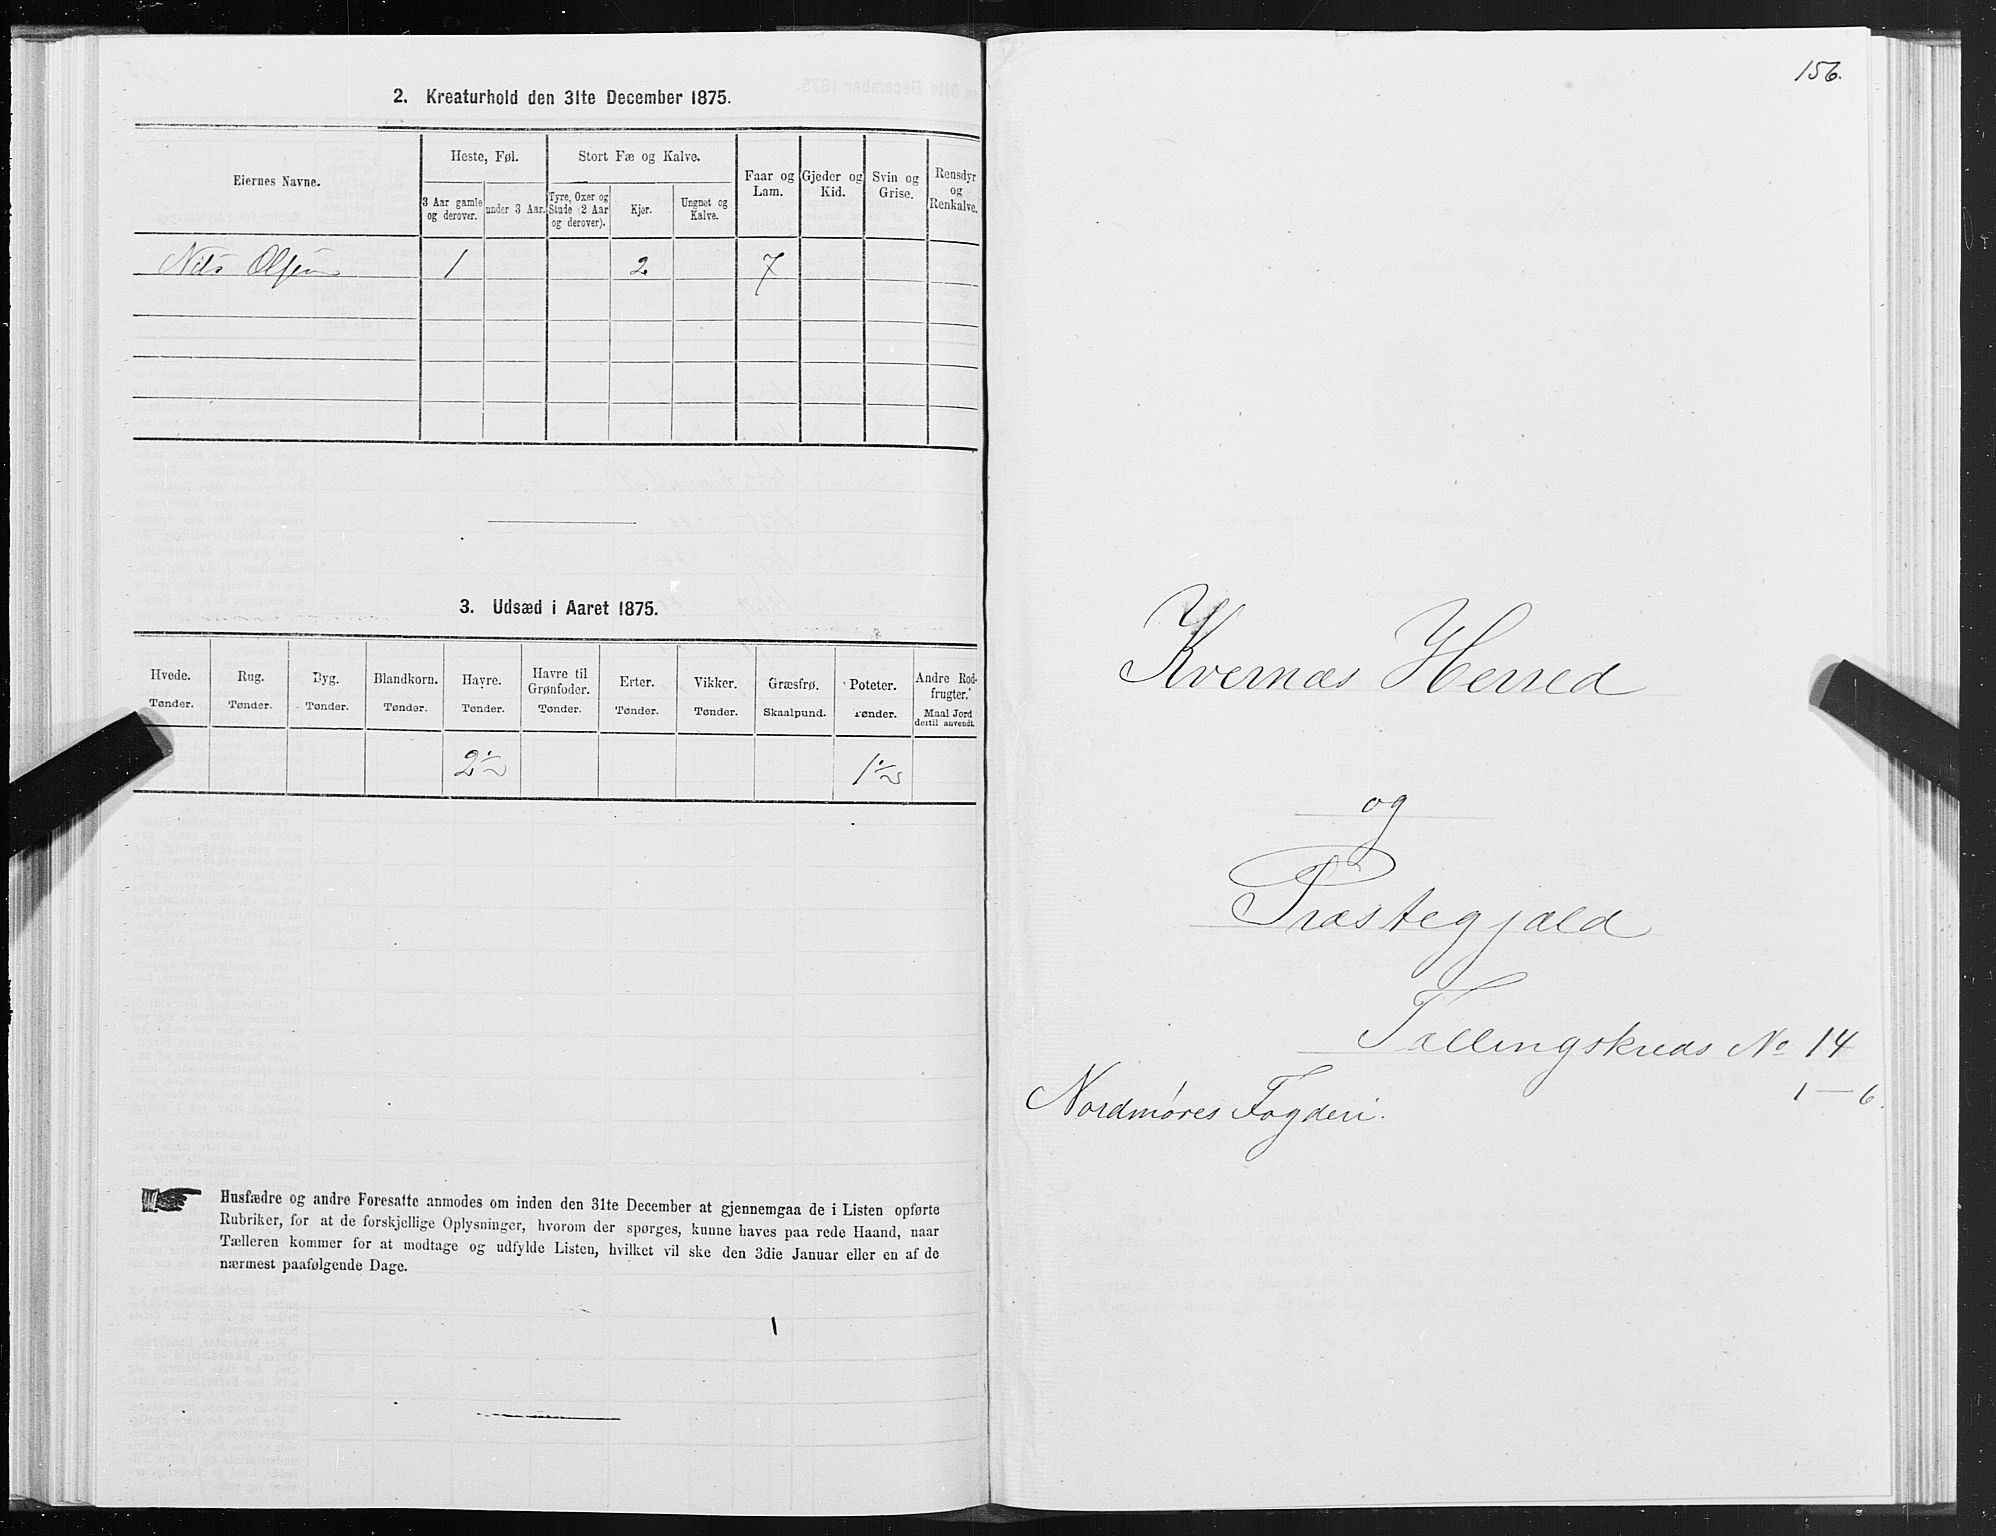 2. Kreaturhold den 31te December 1875.
Eiernes Navne.
Heste, Føl.
Stort Fæ og Kalve.
Faar og Lam.
Gjeder og Kid.
Svin og Grise.
Rensdyr og Renkalve.
3 Aar gamle og derover.
under 3 Aar.
Tyre, Oxer og Stude (2 Aar og derover).
Kjør.
Ungnet og Kalve.
Nils Olsen 1 2 7
3. Udsæd i Aaret 1875.
Hvede. Rug. Byg. Blandkorn. Havre. Havre til Grønfoder. Erter. Vikker. Græsfrø. Poteter. Andre Rodfrugter.
Tønder. Tønder. Tønder. Tønder. Tønder. Tønder. Tønder. Tønder. Skaalpund. Tønder. Maal Jord dertil anvendt.
2 1/2 1 1/2
Husfædre og andre Foresatte anmodes om inden den 31te December at gjennemgaa de i Listen opførte
Rubriker, for at de forskjellige Oplysninger, hvorom der spørges, kunne haves paa rede Haand, naar
Tælleren kommer for at modtage og udfylde Listen, hvilket vil ske den 3die Januar eller en af de
nærmest paafølgende Dage.
156.
Kvernæs Herred
og
Præstegjæld
Tællingskreds No 14
1-6.
Nordmøres Fogderi.